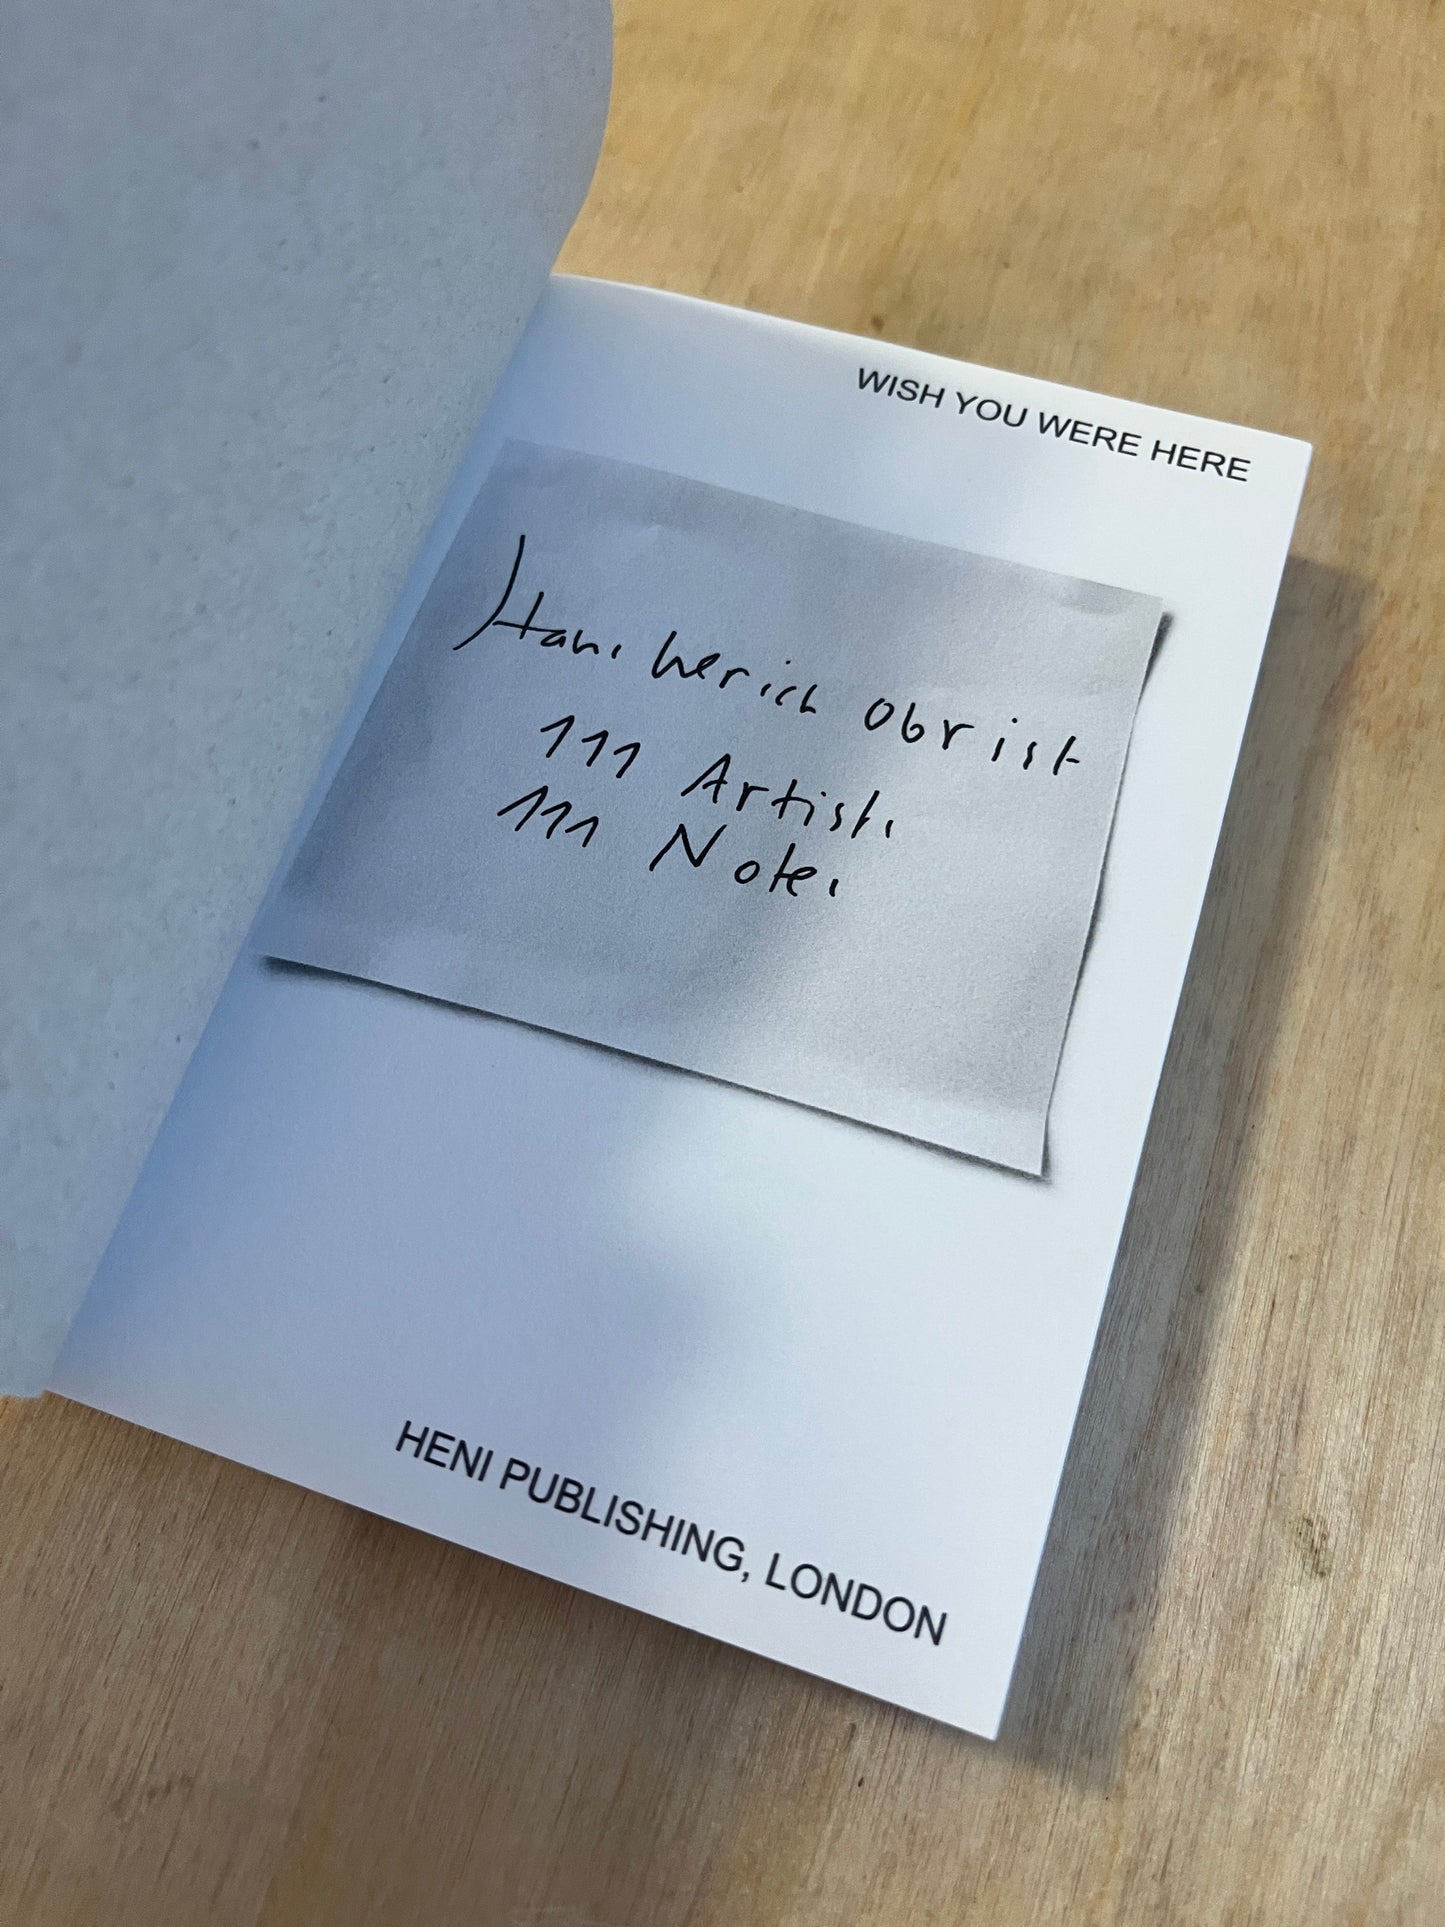 WISH YOU WERE HERE
Hans Ulrich Obrist
111 Artists
111 Notes
HENI PUBLISHING, LONDON